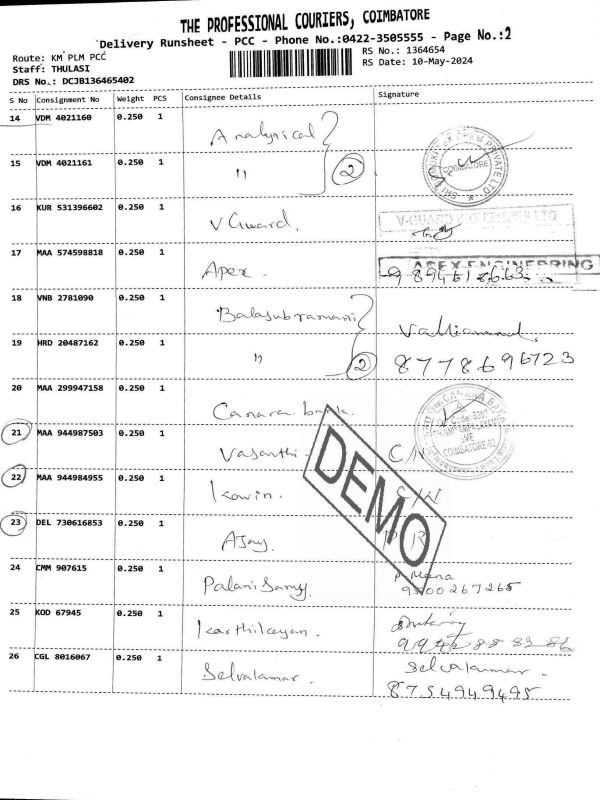 THE PROFESSIONAL COURIERS, COIMBATORE
Delivery Runsheet - PCC - Phone No.:0422-3505555 - Page No.:2
Route: KM PLM PCC
Staff: THULASI
DRS No.: DCJB136465402
RS No.: 1364654
RS Date: 10-May-2024
S No Consignment No Weight PCS Consignee Details Signature
14 VDM 4021160 0.250 1 Analysical
15 VDM 4021161 0.250 1 " 2
COIMBATORE
16 KUR 531396602 0.250 1 V Guard.
17 MAA 574598818 0.250 1 Apex.
APEX ENGINEERING
18 VNB 2781090 0.250 1 Balasubramani
19 HRD 20487162 0.250 1 " 2 8778696723
20 MAA 299947158 0.250 1 Canara bank.
CANARA BANK
COIMBATORE
21 MAA 944987503 0.250 1 Vasanthi
22 MAA 944984955 0.250 1 Kowin.
23 DEL 730616853 0.250 1 AJay.
DEMO
24 CMM 907615 0.250 1 PalaniSamy. P. Meena
9500267265
25 KOD 67945 0.250 1 Karthikeyan.
26 CGL 8016067 0.250 1 Selvakumar. Selvakumar.
8754949495